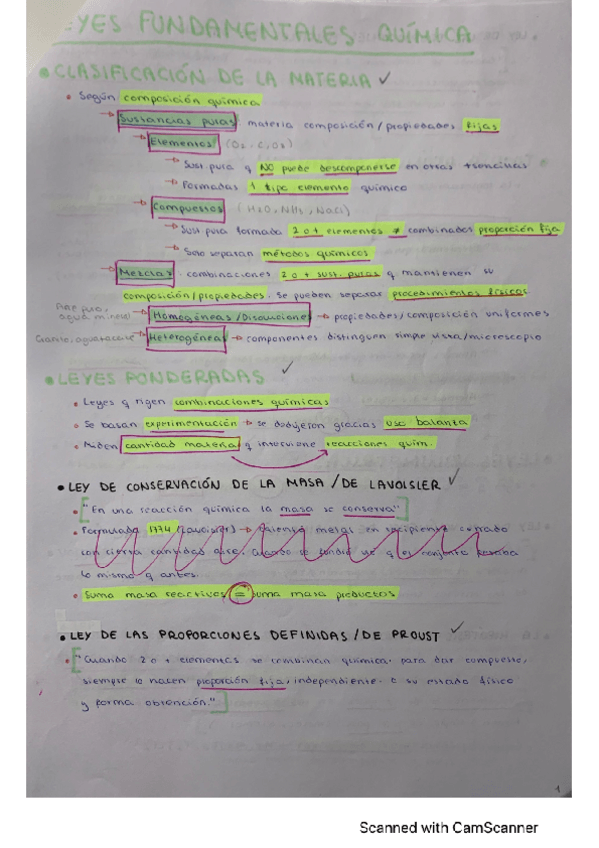 EYES FUNDAMENTALES QUÍMICA
• CLASIFICACIÓN DE LA MATERIA ✓
• Según composición química
→ Sustancias puras: materia composición/propiedades fijas
→ Elementos (O₂, C, O₃)
→ Sust. pura q NO puede descomponerse en otras +sencillas
→ Formadas 1 tipo elemento químico
→ Compuestos (H₂O, NH₃, NaCl)
→ Sust. pura formada 2 o + elementos ≠ combinados proporción fija
→ Solo separan métodos químicos
→ Mezclas: combinaciones 2 o + sust. puras q mantienen su
composición/propiedades. Se pueden separar procedimientos físicos
Aire puro, agua mineral → Homogéneas/Disoluciones → propiedades/composición uniformes
Granito, agua+aceite → Heterogéneas → componentes distinguen simple vista/microscopio
• LEYES PONDERADAS ✓
• Leyes q rigen combinaciones químicas
• Se basan experimentación → se dedujeron gracias uso balanza
• Miden cantidad materia q interviene reacciones quím.
• LEY DE CONSERVACIÓN DE LA MASA / DE LAVOISIER ✓
• "En una reacción química la masa se conserva"
• Formulada 1774 (Lavoisier) → metal en recipiente cerrado
con cierta cantidad aire. Cuando se q el conjunto
lo mismo q antes.
• Suma masa reactivos = suma masa productos
• LEY DE LAS PROPORCIONES DEFINIDAS / DE PROUST ✓
• "Cuando 2 o + elementos se combinan química. para dar compuesto,
siempre lo hacen proporción fija, independiente. a su estado físico
y forma obtención."
1
Scanned with CamScanner